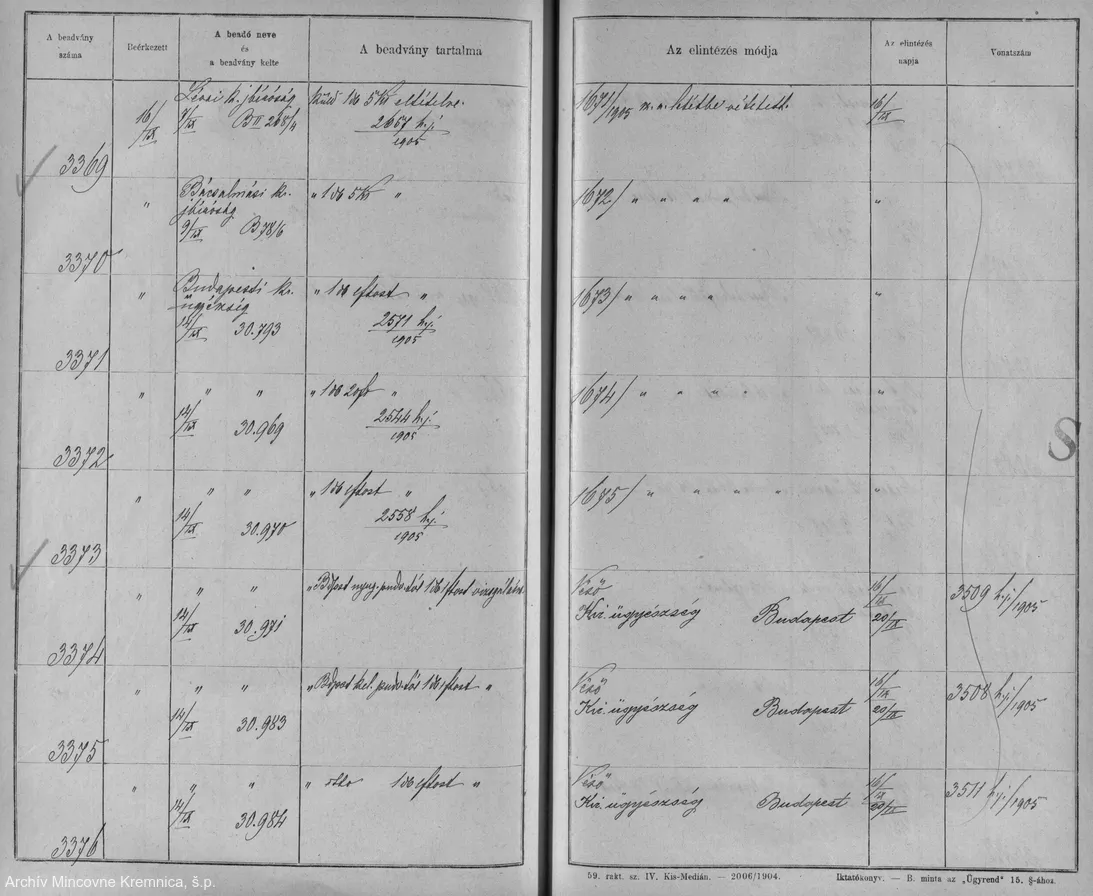 A beadvány
száma
Beérkezett
A beadó neve
és
a beadvány kelte
A beadvány tartalma
Az elintézés módja
Az elintézés
napja
Vonatszám
3369
16/IX
Lévai k. jbíróság
7/IX B II 268/4
küld 1 db 5 Kr elitélve.
2657 h.j.
1905
1671/1905 m. n. letétbe vétetett.
16/IX
3370
"
Bácsalmási kr.
jbíróság
9/IX B 78/6
" 1 db 5 Kr "
1672/ " " " "
"
3371
"
Budapesti kr.
ügyészség
14/IX 30.793
" 1 db eftost "
2571 h.j.
1905
1673/ " " " "
"
3372
" " "
14/IX 30.969
" 1 db 20 f "
2544 h.j.
1905
1674/ " " " "
"
3373
" " "
14/IX 30.970
" 1 db eftost "
2558 h.j.
1905
1675/ " " " "
"
3374
" " "
14/IX 30.971
" Bdpest nyug. pudv. tól 1 db eftost vizsgálatra
Véső
Kir. ügyészség Budapest
16/IX
20/IX
3509 h.j./1905
3375
" " "
14/IX 30.983
" Bdpest kel. pudv. tól 1 db eftost "
Véső
Kir. ügyészség Budapest
16/IX
20/IX
3508 h.j./1905
3376
" " "
14/IX 30.984
" otto 1 db eftost "
Véső
Kir. ügyészség Budapest
16/IX
20/IX
3511 h.j./1905
S
59. rakt. sz. IV. Kis-Medián. — 2006/1904.
Iktatókönyv. — B. minta az „Ügyrend" 15. §-ához.
Archív Mincovne Kremnica, š.p.